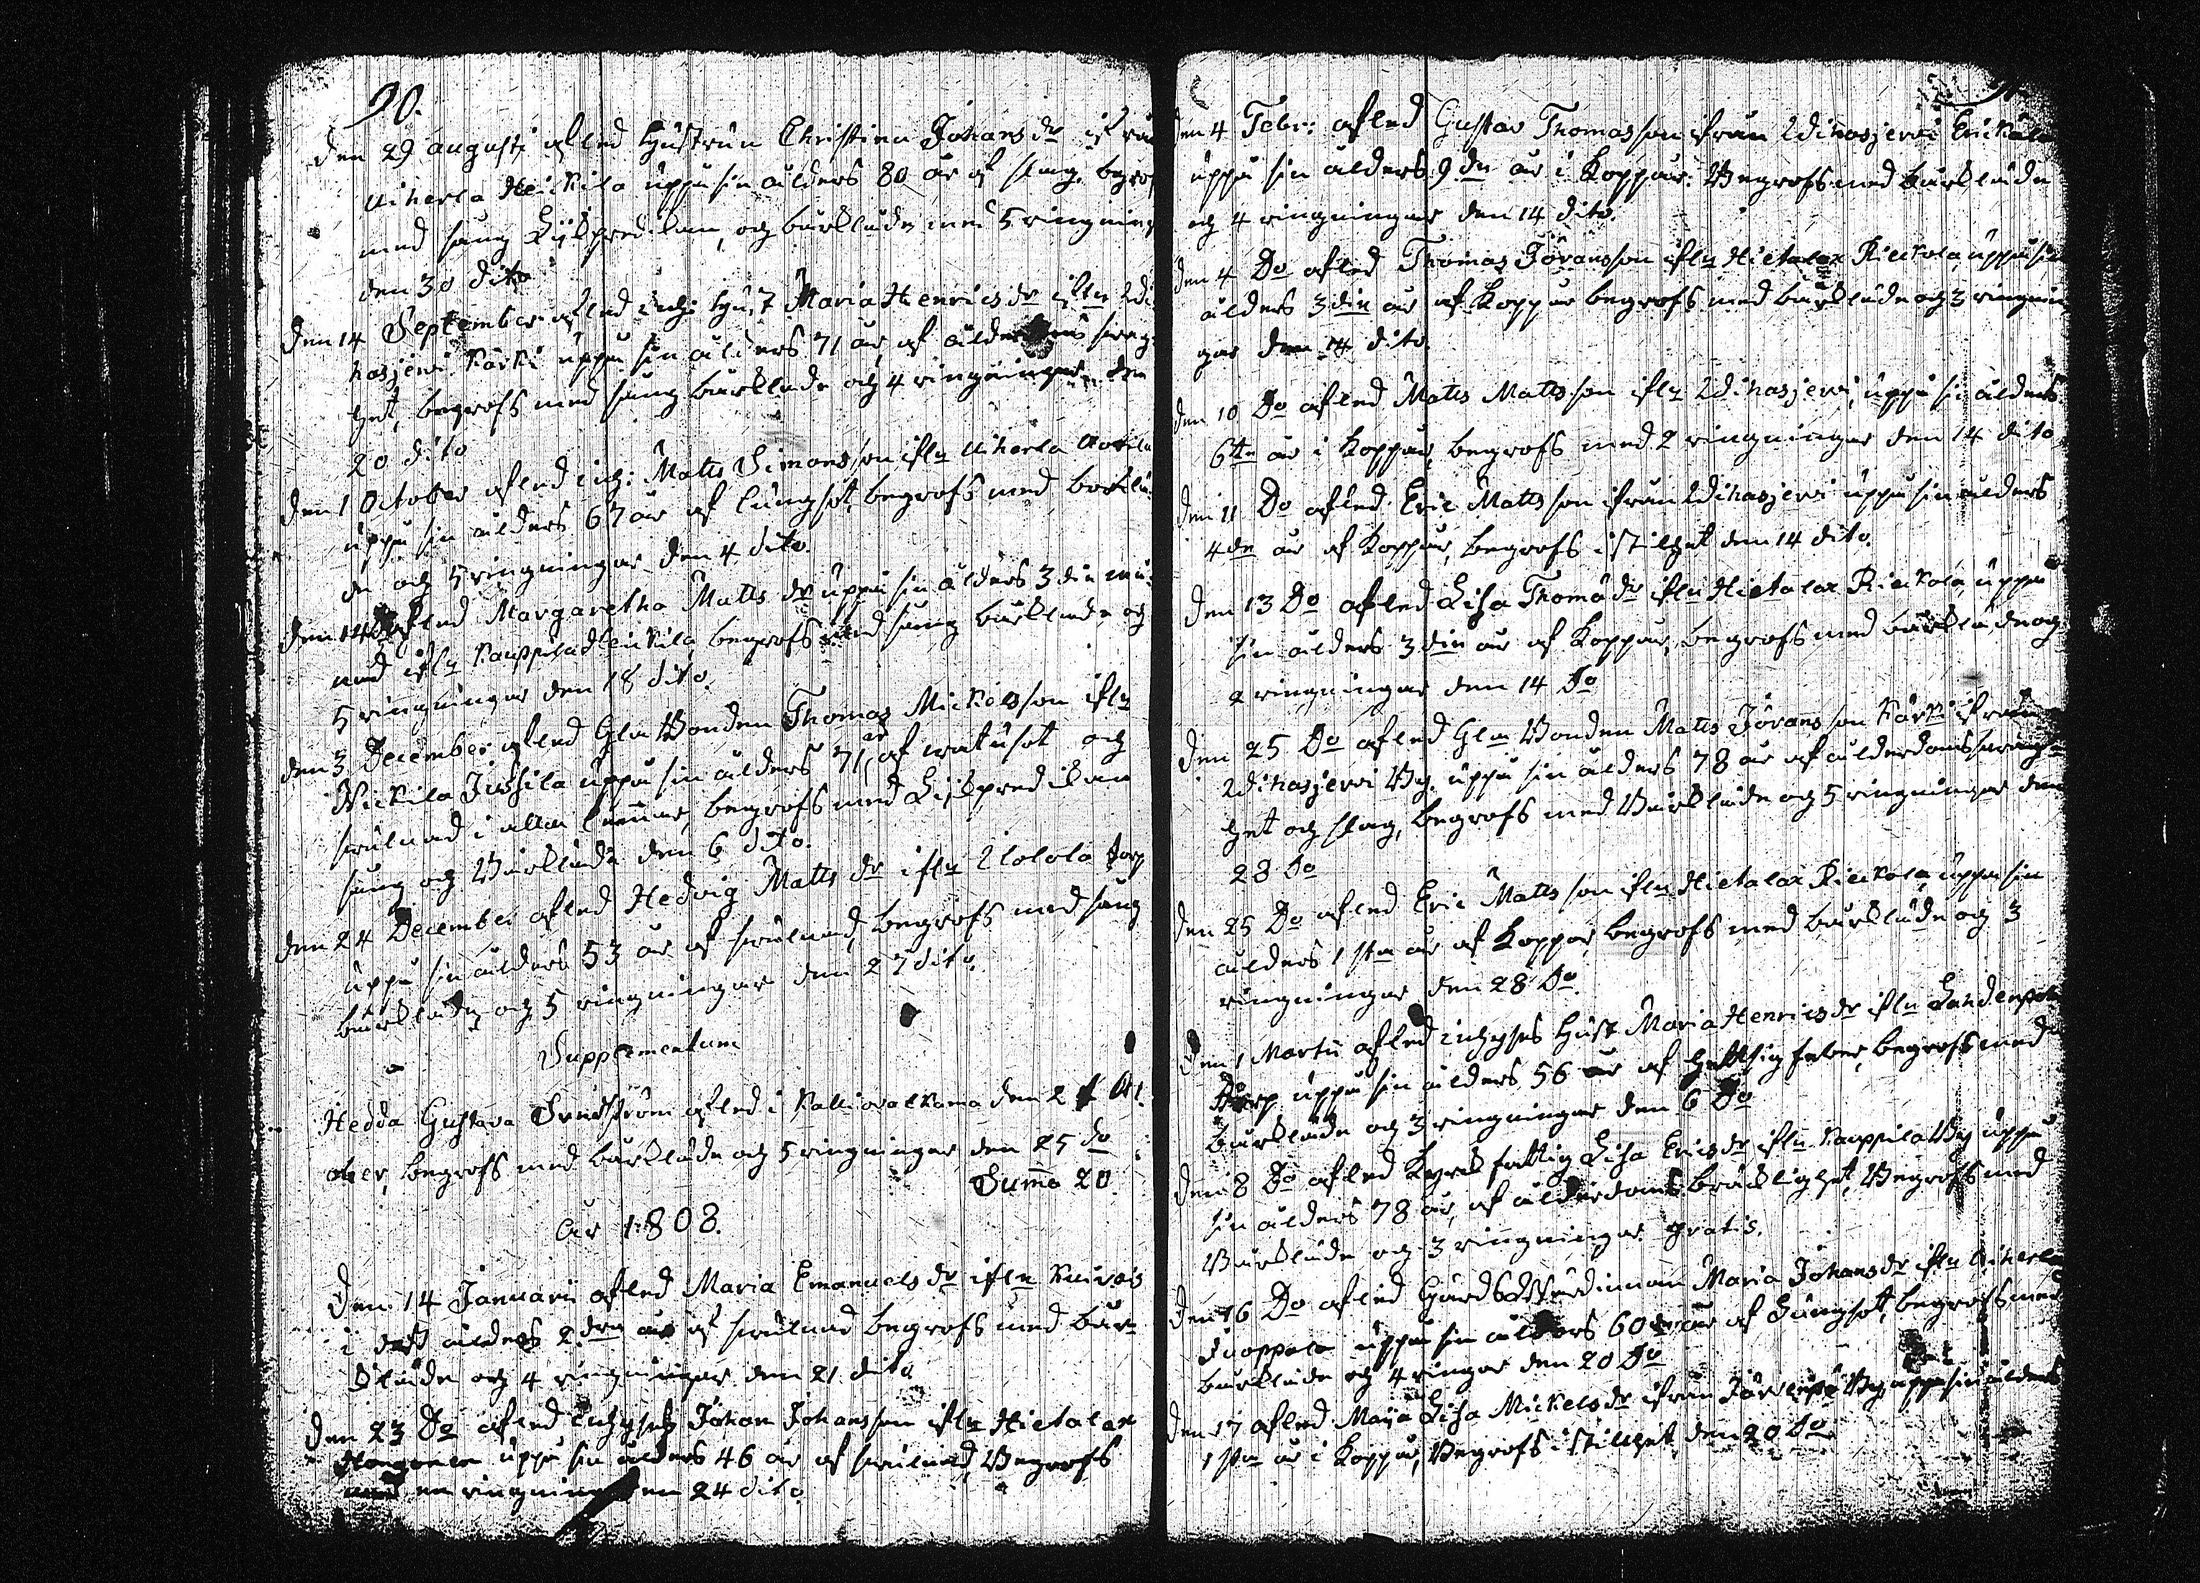 90.
Den 29 augusti afled Hustrun Christina Johansdr ifrån
Uiherla Heickila uppå sin ålders 80 år af slag, begrofs
med sång Lijkpredikan, och bårkläde med 5 ringning
den 30 dito
Den 14 September afled Inh: Hust Maria Henricsdr ifrn Idi
hasjerwi Kärki uppå sin ålders 71 år, af ålderdoms swag
het, begrofs med sång bårkläde och 4 ringningar den
20 dito
Den 1 October afled inh: Matts Simonsson ifrn Uiherla
uppå sin ålders 67 år af lungsot, begrofs med bårklä
de och 5 ringningar den 4 dito.
Den 14 afled Margaretha Mattsdr uppå sin ålders 3die må
nad ifrn Kauppila Heickila begrofs med sång bårkläde och
5 ringningar den 18 dito.
Den 3 December afled Gla Bonden Thomas Mickelsson ifrn
Nickila Jussila uppå sin ålders 71 år af watusot och
swulnad i alla lemmar, begrofs med Lijkpredikan
sång och Bårkläde den 6 dito.
Den 24 December afled Hedvig Mattsdr ifrn Ilolola torp
uppå sin ålders 53 år af swulnad, begrofs med sång
bårkläde och 5 ringningar den 27 dito.
Supplementum
Hedda Gustava afled i den 2 Oct
ober, begrofs med bårkläde och 5 ringningar den 25 do
Suma 20.
År 1808.
Den 14 Januarii afled Maria Emanuelsdr ifrn Kuivais
i dess ålders 2dra år af swulnad begrofs med bår
kläde och 4 ringningar den 21 dito
Den 23 Do afled Inhyses Johan Johansson ifrn Hietalax
uppå sin ålders 46 år af swulnad, Begrofs
med en ringning den 24 dito
Den 4 Febr: afled Gustav Thomasson ifrån Idihasjerwi Erickälä
uppå sin ålders 9de år i Koppår. Begrofs med bårkläde
och 4 ringningar den 14 dito.
Den 4 Do afled Thomas Jöransson ifrn Hietalax Rieckola, uppå sin
ålders 3die år af Koppår begrofs med bårkläde och 3 ringnin
gar den 14 dito.
Den 10 Do afled Matts Mattsson ifrn Idihasjerwi, uppå sin ålders
6te år i Koppår, begrofs med 2 ringningar den 14 dito
Den 11 Do afled Eric Mattsson ifrån Idihasjerwi uppå sin ålders
4de år af Koppår, begrofs i stilhet den 14 dito.
Den 13 Do afled Lisa Thomædr ifrn Hietalax Rieckola, uppå
sin ålders 3die år af Koppår, begrofs med bårkläde och
2 ringningar den 14 Do
Den 25 Do afled Gla Bonden Matts Jöransson Kärki ifrån
Idihasjerwi By. uppå sin ålders 78 år af ålderdoms swag
het och slag, begrofs med Bårkläde och 5 ringningar den
28 Do
Den 25 Do afled Eric Mattsson ifrn Hietalax Rieckola, uppå sin
ålders 1sta år af Koppor, begrofs med bårkläde och 3
ringningar den 28 Do.
Den 1 Martii afled inhyses Hust Maria Henricsdr ifrn
Torp uppå sin ålders 56 år af hettsig feber, begrofs med
bårkläde och 3 ringningar den 6 Do
Den 8 Do afled Kyrkfattig Lisa Ericsdr ifrn Kauppila By uppå
sin ålders 78 år, af ålderdoms bräcklighet, Begrofs med
Bårkläde och 3 ringningar gratis.
Den 16 Do afled Gårds Wärdinnan Maria Johansdr ifrn Uiherla
uppå sin ålders 60 år af Lungsot, begrofs med
bårkläde och 4 ringar den 20 Do
Den 17 afled Maija Lisa Mickelsdr ifrån By, uppå sin ålders
1sta år i Koppår, Begrofs i stillhet den 20 Do